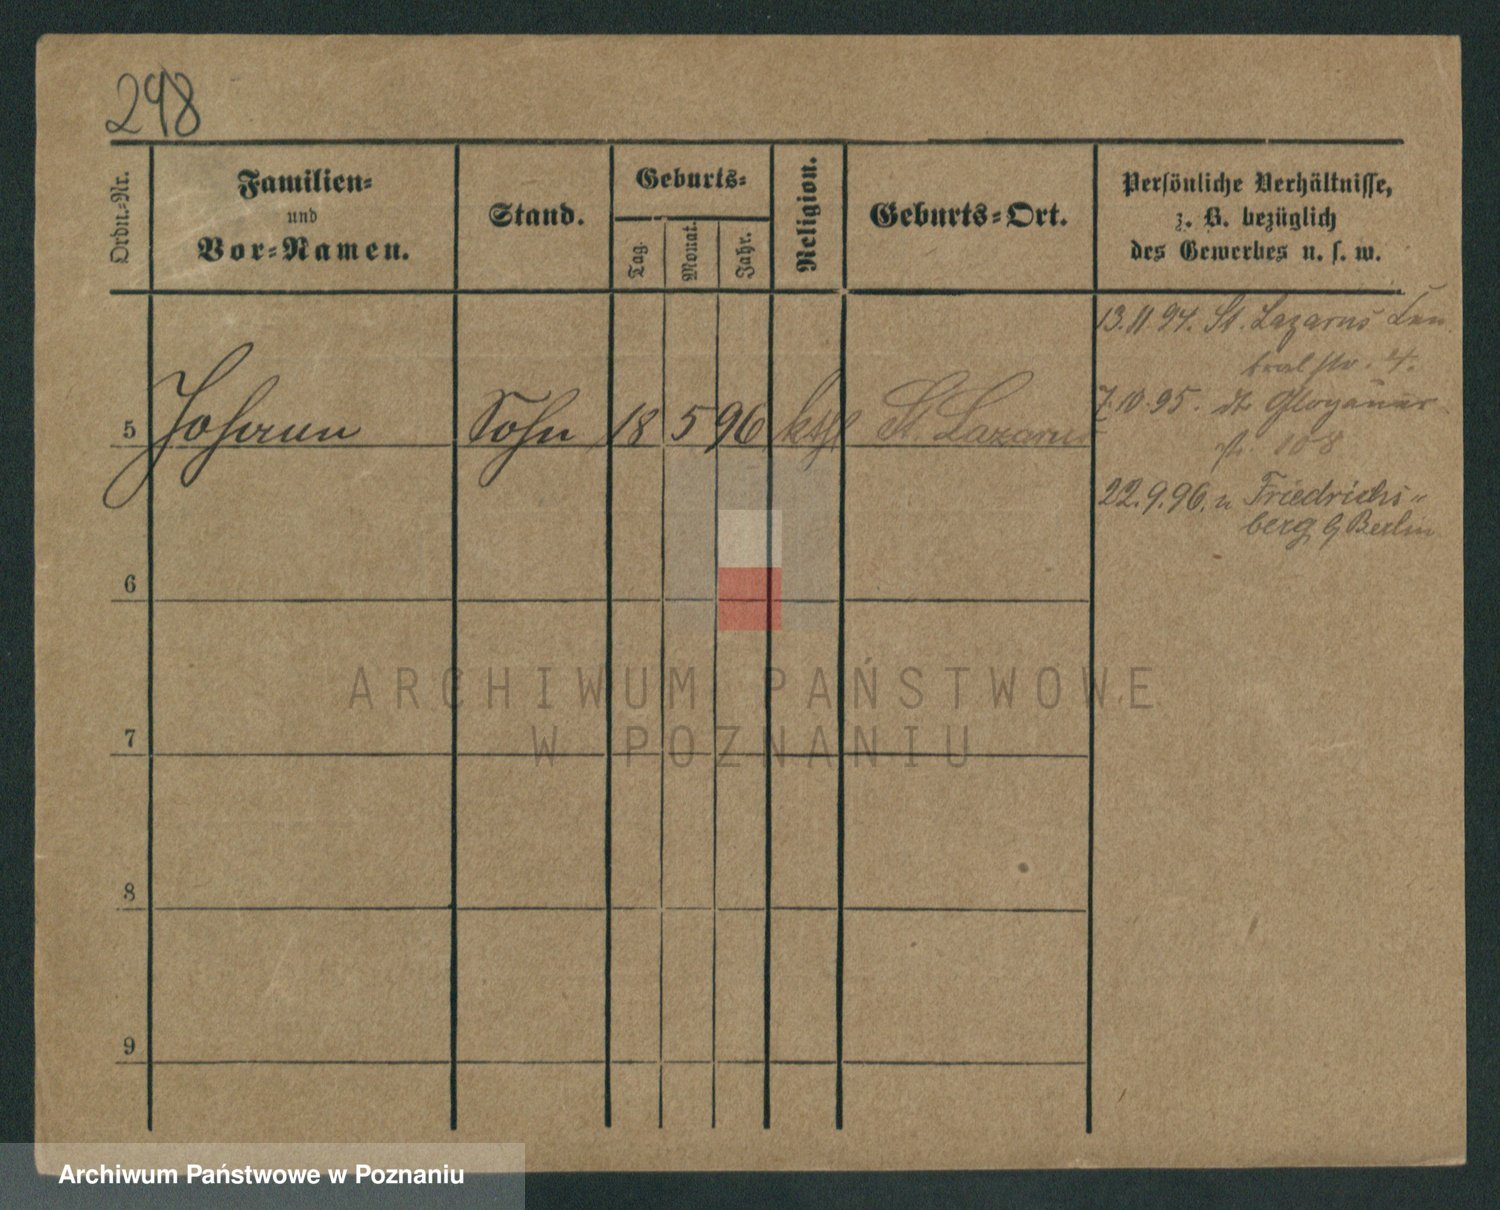 298
Ordn.-Nr.
Familien-
und
Vor-Namen.
Stand.
Geburts-
Tag.
Monat.
Jahr.
Religion.
Geburts-Ort.
Persönliche Verhältnisse,
z. B. bezüglich
des Gewerbes u. s. w.
13.11.94. St. Lazarus Cen
tral str. 4.
5 Johann Sohn 18 5 96 kath St. Lazarus
7.10.95. Glogauer
str. 108
22.9.96. n Friedrichs-
berg b Berlin
6
7
8
9
ARCHIWUM PAŃSTWOWE
W POZNANIU
Archiwum Państwowe w Poznaniu